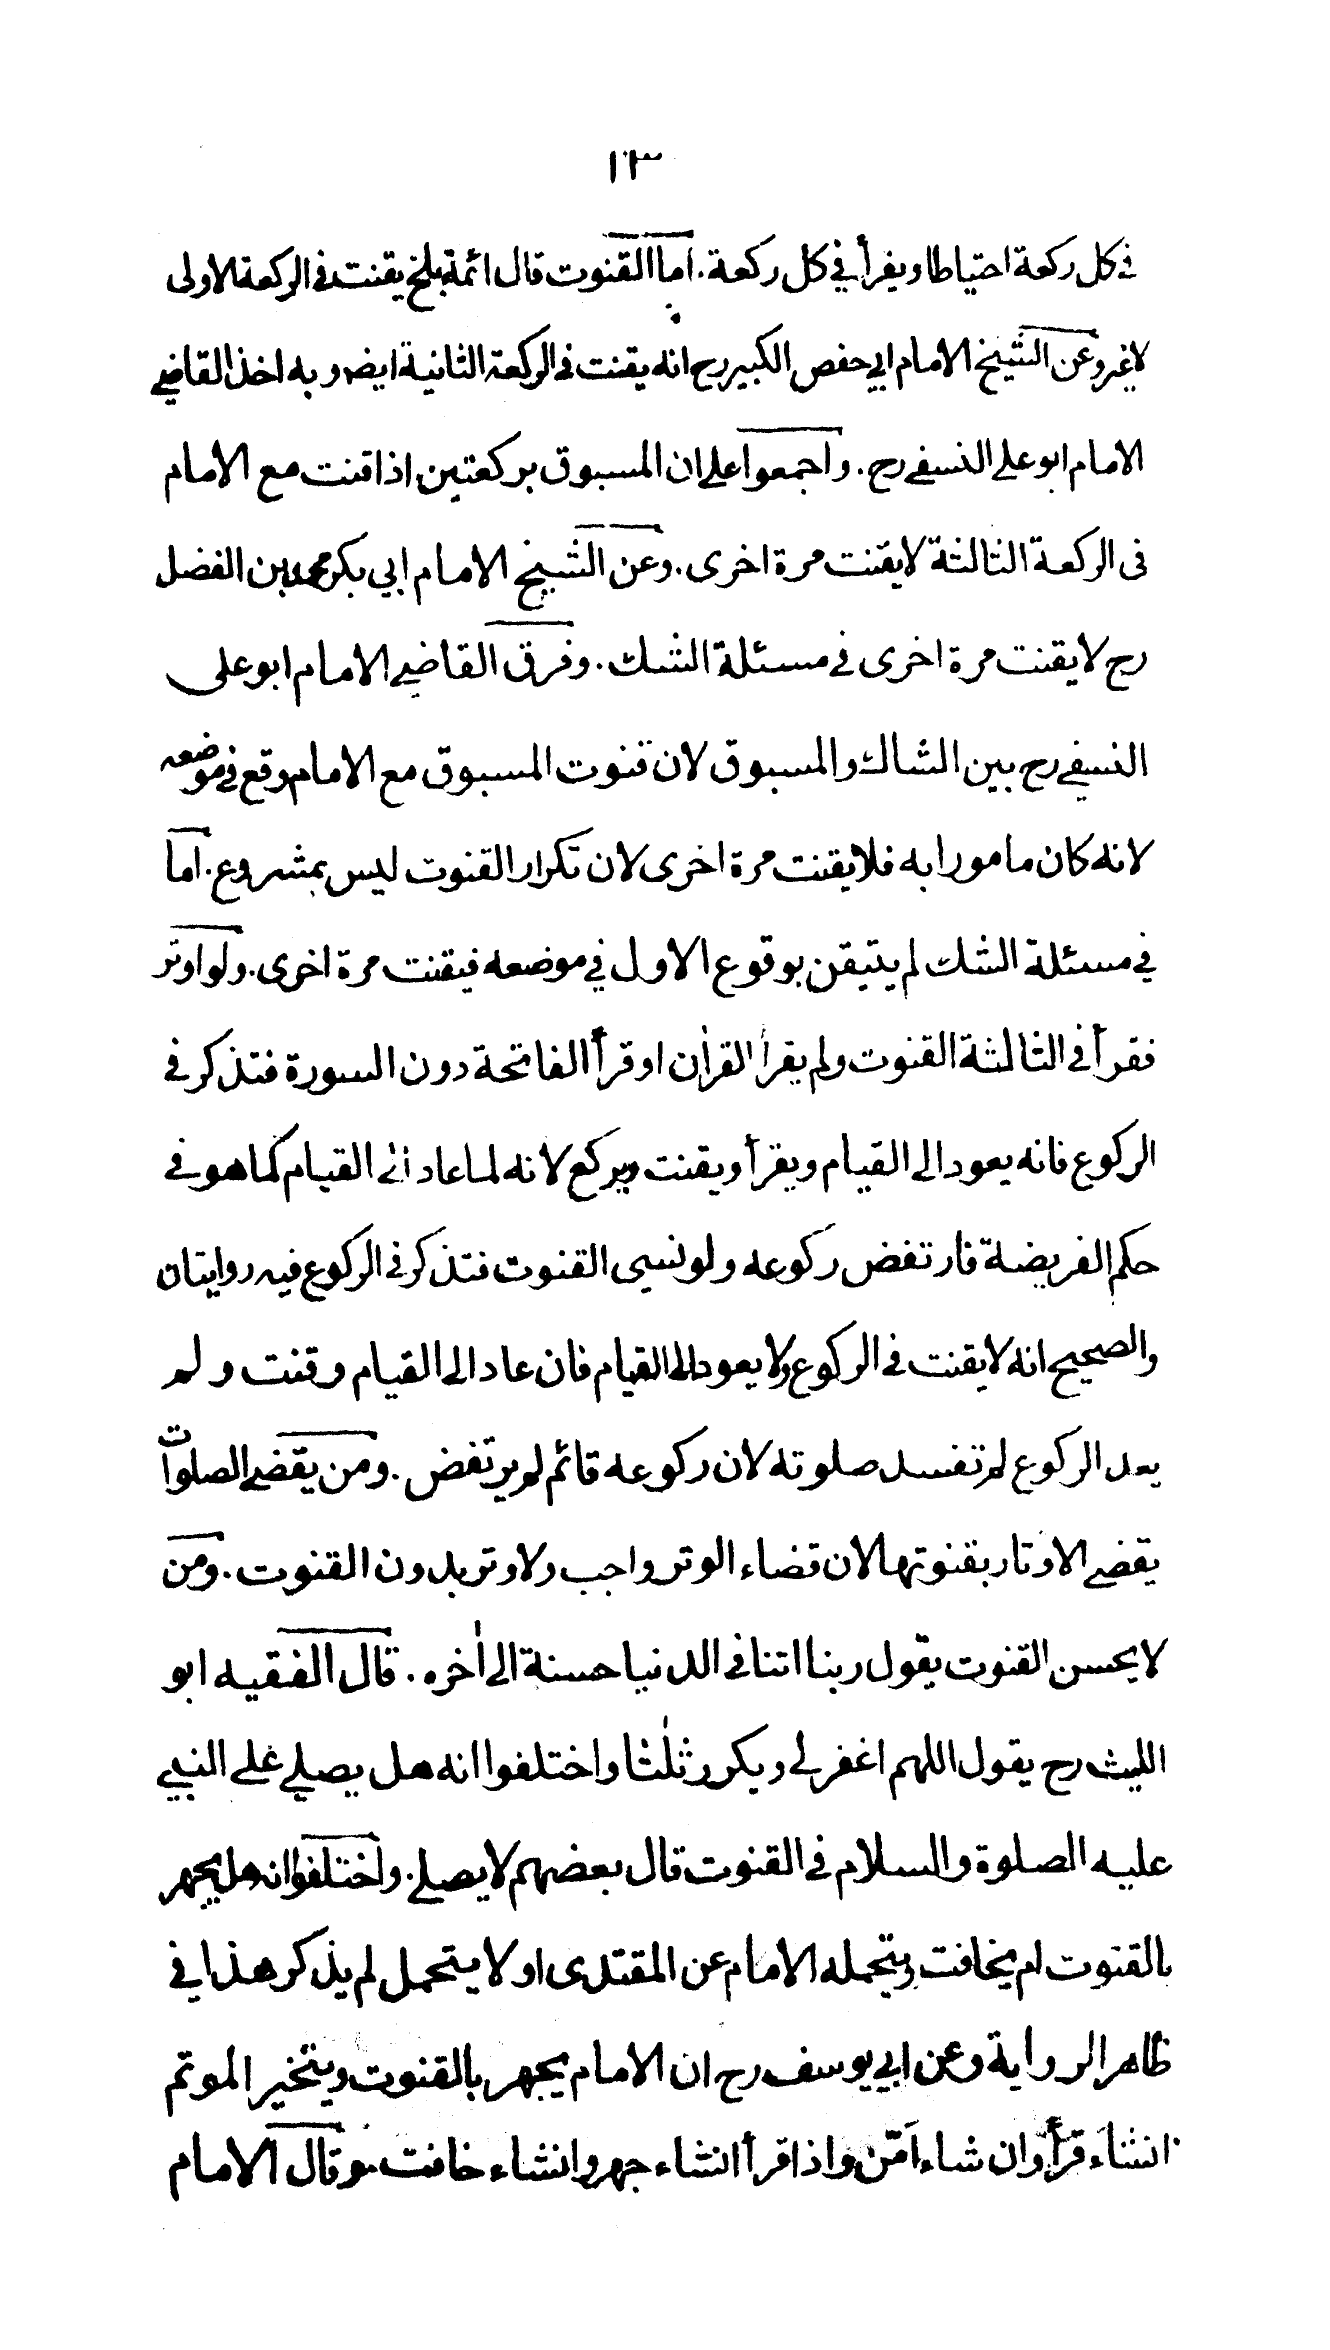 ١٣
في كل ركعة احتياطا ويقرأ في كل ركعة . اما القنوت قال ائمة بلخ يقنت في الركعة الاولى
لا غير وعن الشيخ الامام ابي حفص الكبير رح انه يقنت في الركعة الثانية ايضا وبه اخذ القاضي
الامام ابو علي النسفي رح . واجمعوا على ان المسبوق بركعتين اذا قنت مع الامام
في الركعة الثالثة لا يقنت مرة اخرى . وعن الشيخ الامام ابي بكر محمد بن الفضل
رح لا يقنت مرة اخرى في مسئلة الشك . وفرق القاضي الامام ابو علي
النسفي رح بين الشاك والمسبوق لان قنوت المسبوق مع الامام وقع في موضعه
لانه كان مامورا به فلا يقنت مرة اخرى لان تكرار القنوت ليس بمشروع . اما
في مسئلة الشك لم يتيقن بوقوع الاول في موضعه فيقنت مرة اخرى . ولو اوتر
فقرأ في الثالثة القنوت ولم يقرأ القرأن او قرأ الفاتحة دون السورة فتذكر في
الركوع فانه يعود الى القيام ويقرأ ويقنت ويركع لانه لما عاد الى القيام كما هو في
حكم الفريضة فارتفض ركوعه ولو نسي القنوت فتذكر في الركوع فيه روايتان
والصحيح انه لا يقنت في الركوع ولا يعود الى القيام فان عاد الى القيام وقنت ولم
يعد الركوع لم تفسد صلوته لان ركوعه قائم لم يرتفض . ومن يقضي الصلوات
يقضي الاوتار بقنوتها لان قضاء الوتر واجب ولا وتر بدون القنوت . ومن
لا يحسن القنوت يقول ربنا اتنا في الدنيا حسنة الى أخره . قال الفقيه ابو
الليث رح يقول اللهم اغفر لي ويكرر ثلٰثا واختلفوا انه هل يصلي على النبي
عليه الصلوة والسلام في القنوت قال بعضهم لا يصلي . واختلفوا انه هل يجهر
بالقنوت ام يخافت ويتحمله الامام عن المقتدى او لا يتحمل لم يذكر هذا في
ظاهر الرواية وعن ابي يوسف رح ان الامام يجهر بالقنوت ويتخير الموتم
انشاء قرأ وان شاء امّن واذا قرأ انشاء جهر وانشاء خافت . وقال الامام